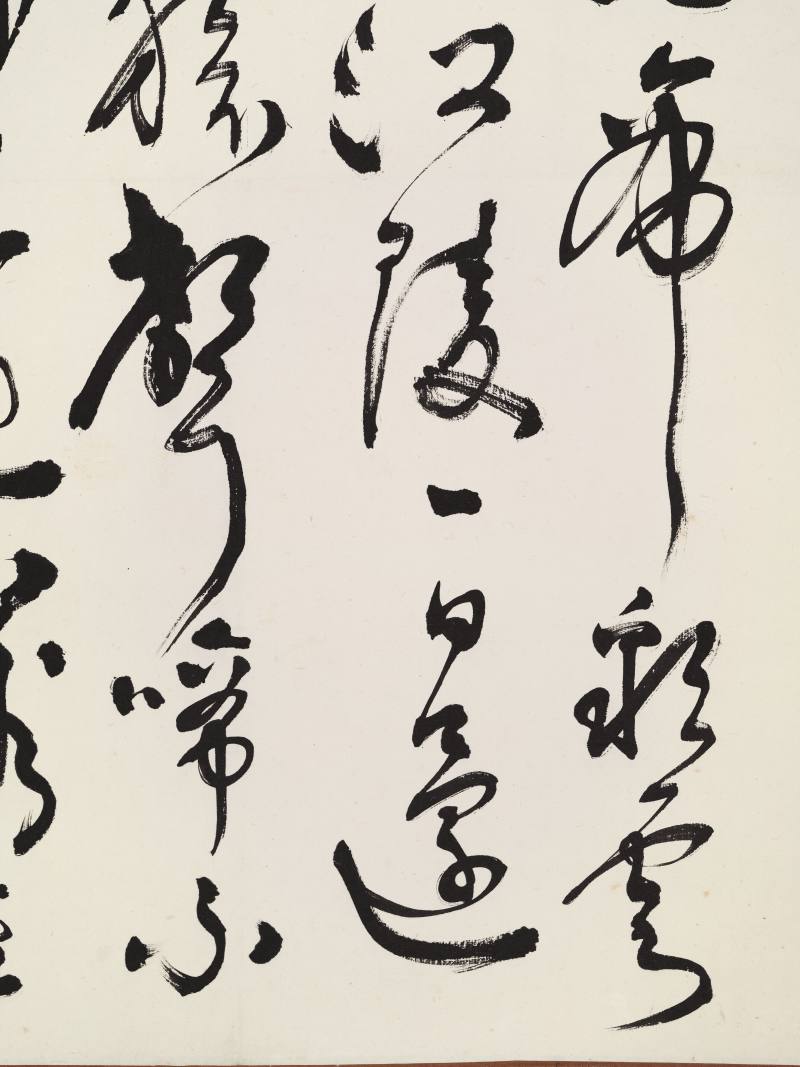 帝彩雲
江陵一日還
猿聲啼不